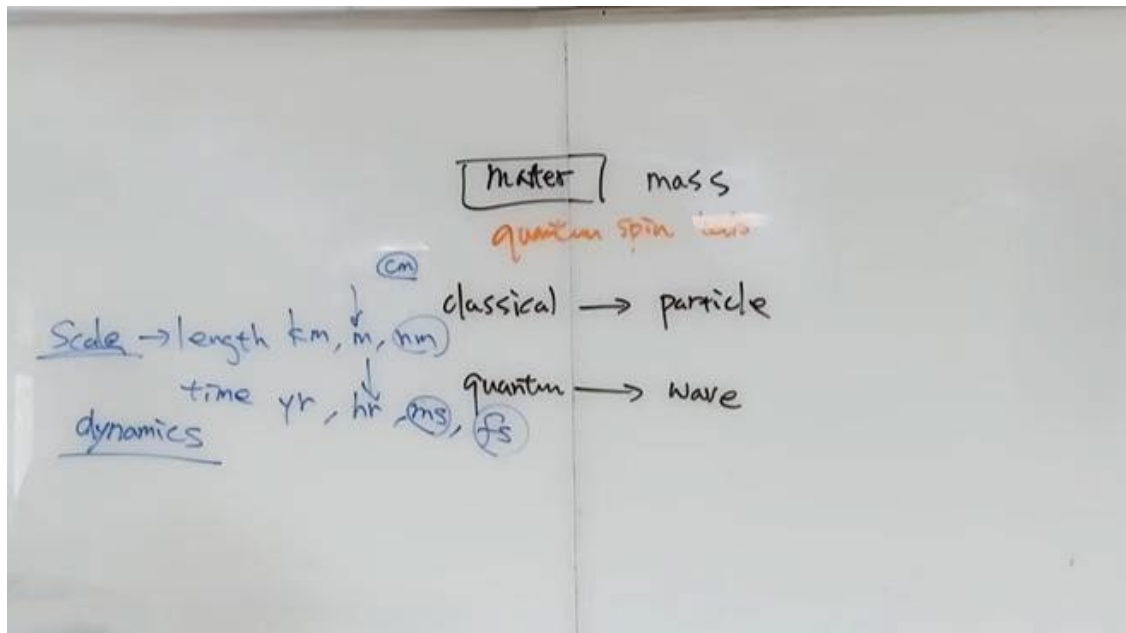 matter mass
quantum spin
cm
classical → particle
Scale → length km, m, nm
time yr, hr, ms, fs
quantum → wave
dynamics